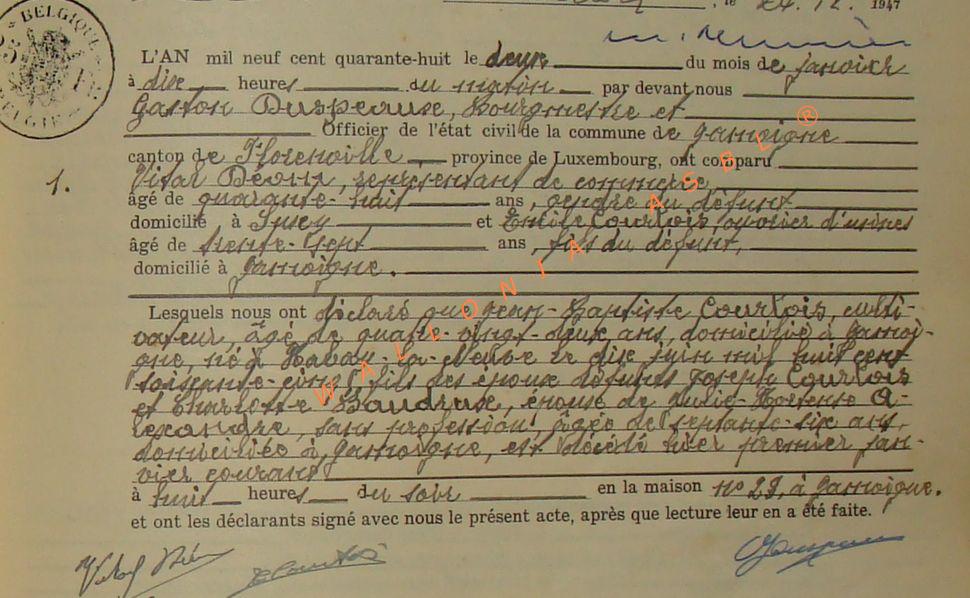 BELGIQUE
BELGIE
le 24. 12. 1947
L'AN mil neuf cent quarante-huit le deux du mois de janvier
à dix heures du matin par devant nous
Gaston Duspeaux, Bourgmestre et
Officier de l'état civil de la commune de Jamoigne
canton de Florenville, province de Luxembourg, ont comparu
1.
Vital représentant de commerce
âgé de quarante-huit ans, gendre du défunt
domicilié à et Emile Courtois, ouvrier d'usines
âgé de trente-sept ans, fils du défunt,
domicilié à Jamoigne.
Lesquels nous ont déclaré que Jean-Baptiste Courtois, culti-
vateur, âgé de quatre-vingt-deux ans, domicilié à Jamoi-
gne, né à le dix juin mil huit cent
soixante-cinq, fils des époux défunts Joseph Courtois
et Charlotte Baudruxe, époux de Julie-Hortense A-
lexandre, sans profession, âgée de septante-six ans,
domiciliée à Jamoigne, est décédé hier premier jan-
vier courant
à huit heures du soir en la maison n° à Jamoigne.
et ont les déclarants signé avec nous le présent acte, après que lecture leur en a été faite.
Vital
WALLONIA ASBL ®